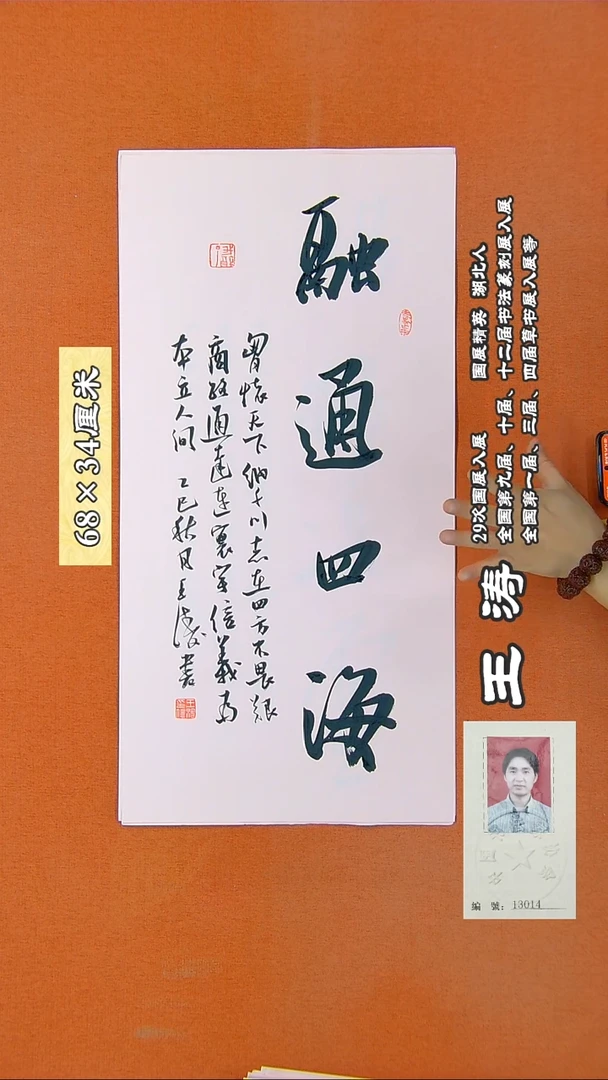 融通四海
胃懷天下納千川志在四方不畏艰
商路通達連寰宇信義為
本立人间 乙巳秋月王涛書
68×34厘米
29次国展入展 国展精英 湖北人
全国第九届、十届、十二届书法篆刻展入展
全国第一届、三届、四届草书展入展等
王涛
编 號：13014